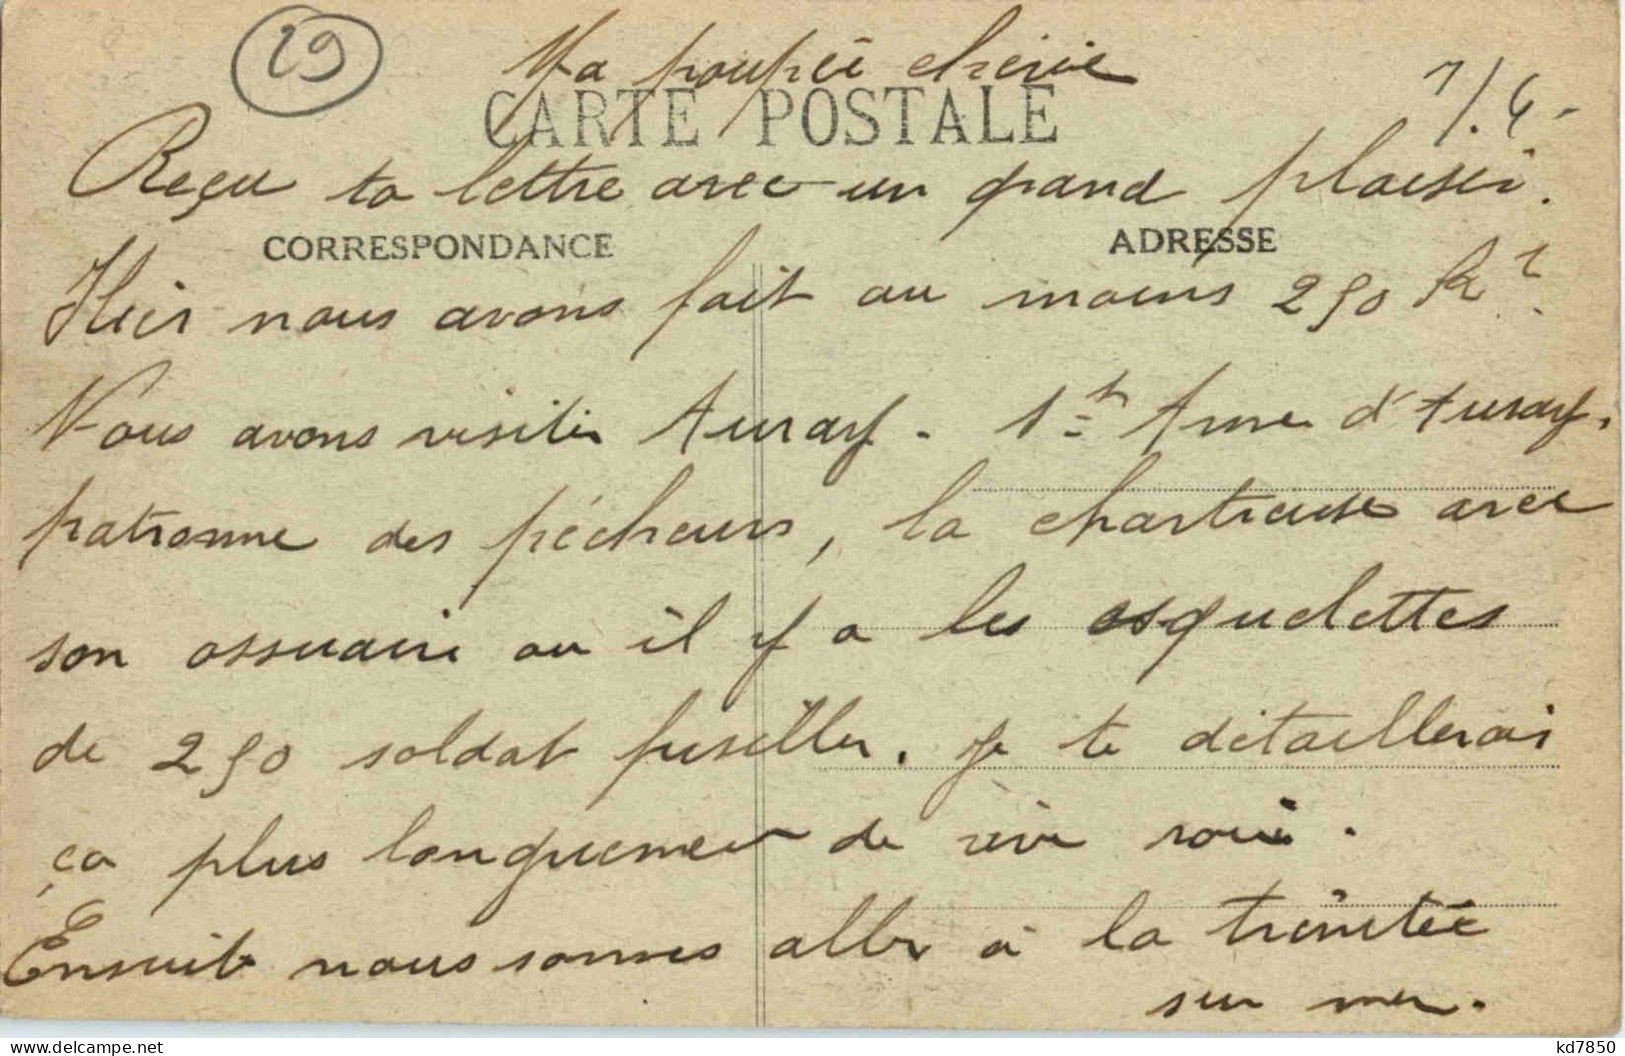 29
Ma poupée chérie
1/.6-
CARTE POSTALE
Reçu ta lettre avec un grand plaisir.
CORRESPONDANCE
ADRESSE
Hier nous avons fait au moins 250
Nous avons visiter Auray. Ste Anne d'Auray.
patronne des pécheurs, la chartreuse avec
son ossuaire ou il y a les esquelettes
de 250 soldat fusiller. Je te détaillerais
ça plus longuement de vive voix.
Ensuite nous sommes aller à la trinitée
sur mer.
kd7850